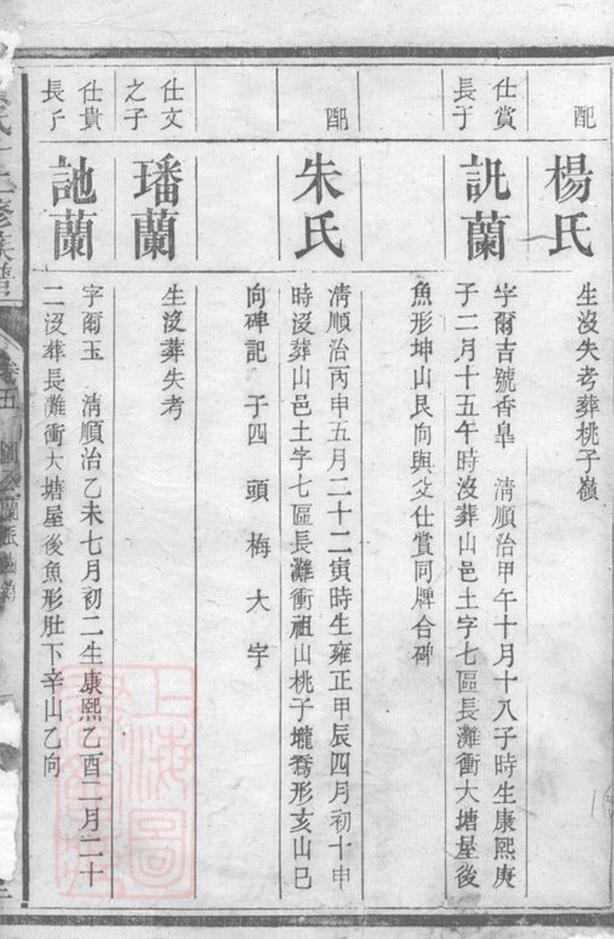 配
楊氏
生沒失考葬桃子嶺
仕賞
長子
訊蘭
字爾吉號香臯 清順治甲午十月十八子時生康熙庚
子二月十五午時沒葬山邑土字七區長灘衝大塘屋後
魚形坤山艮向與父仕賞同牌合碑
配
朱氏
清順治丙申五月二十二寅時生雍正甲辰四月初十申
時沒葬山邑土字七區長灘衝祖山桃子壠鴌形亥山巳
向碑記 子四 頭 梅 大 字
仕文
之子
璠蘭
生沒葬失考
仕貴
長子
訑蘭
字爾玉 清順治乙未七月初二生康熙乙酉二月二十
二沒葬長灘衝大塘屋後魚形肚下辛山乙向
氏 修族譜
卷五
蘭派
上海圖